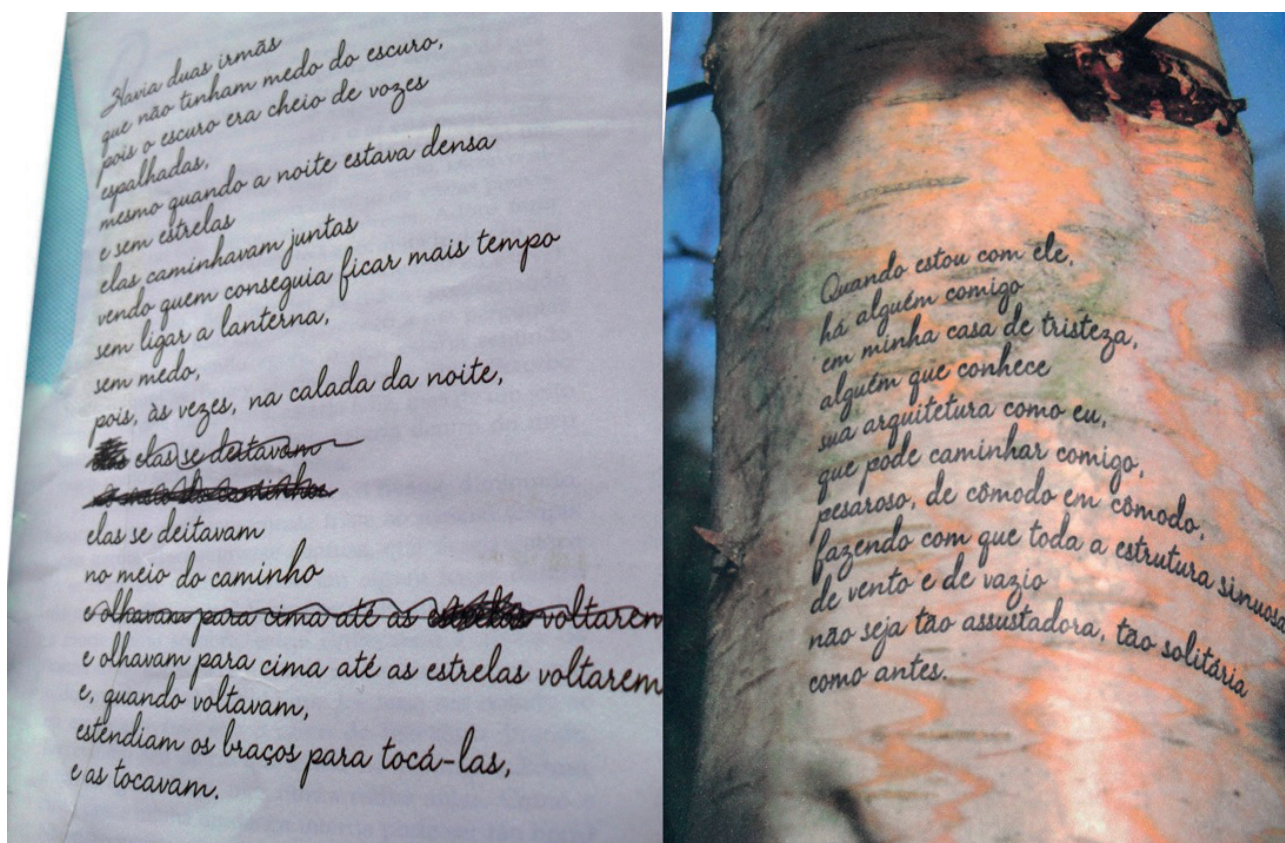 Havia duas irmãs
que não tinham medo do escuro,
pois o escuro era cheio de vozes
espalhadas,
mesmo quando a noite estava densa
e sem estrelas
elas caminhavam juntas
vendo quem conseguia ficar mais tempo
sem ligar a lanterna,
sem medo,
pois, às vezes, na calada da noite,
elas se deitavam
no meio do caminho
elas se deitavam
no meio do caminho
e olhavam para cima até as estrelas voltarem
e olhavam para cima até as estrelas voltarem
e, quando voltavam,
estendiam os braços para tocá-las,
e as tocavam.
Quando estou com ele,
há alguém comigo
em minha casa de tristeza,
alguém que conhece
sua arquitetura como eu,
que pode caminhar comigo,
pesaroso, de cômodo em cômodo,
fazendo com que toda a estrutura sinuosa
de vento e de vazio
não seja tão assustadora, tão solitária
como antes.